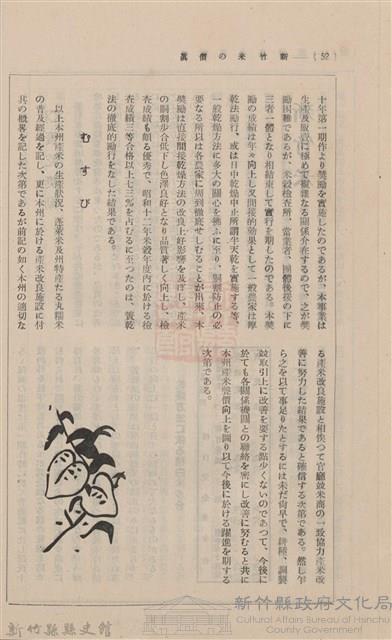 (52)
新竹米の價眞
十年第一期作より奬勵を實施したのであるが、本事業は
生產及取引に極めて複雜なる關係介在するので、之が奬
勵困難であるが、米穀檢査所、當業者、團體後援の下に
三者一體となり相結束して實行を期したのである。本奬
勵の成績は年々向上し又間接的効果として一般農家は摩
乾法勵行、或は日中乾燥中止所謂半天乾を實施する等
一般乾燥方法に多大の關心を拂ふに至り、胴割防止の必
要なる所以は各農家に周到徹底せしむることが出來、本
奬勵は直接間接乾燥方法の改良上好影響を及ぼし、產米
の胴割步合低下し色澤良好となり品質著しく向上し、檢
査成績も頗る優秀で、昭和十二年米穀年度内に於ける檢
査成績三等合格以上七三%を占むるに至つたのは、實乾
法の徹底的勵行をなした結果である。
むすび
以上本州產米の生產狀況、蓬萊米及州特產たる丸糯米
の普及經過を記し、更に本州に於ける產米改良施設に付
其の概畧を記した次第であるが前記の如く本州の適切な
る產米改良施設と相俟つて官廳並米商の一致協力產米改
善に努力した結果であると確信する次第である。然し乍
ら之を以て事足りたとするには未だ尙早で、耕種、調製
並取引上に改善を要する點少くないのであつて、今後に
於ても各關係機關との聯絡を密にし改善に努むると共に
本州產米聲價向上を圖り以て今後に於ける躍進を期する
次第である。
新竹縣縣史館
新竹縣政府文化局
Cultural Affairs Bureau of Hsinchu
County Government